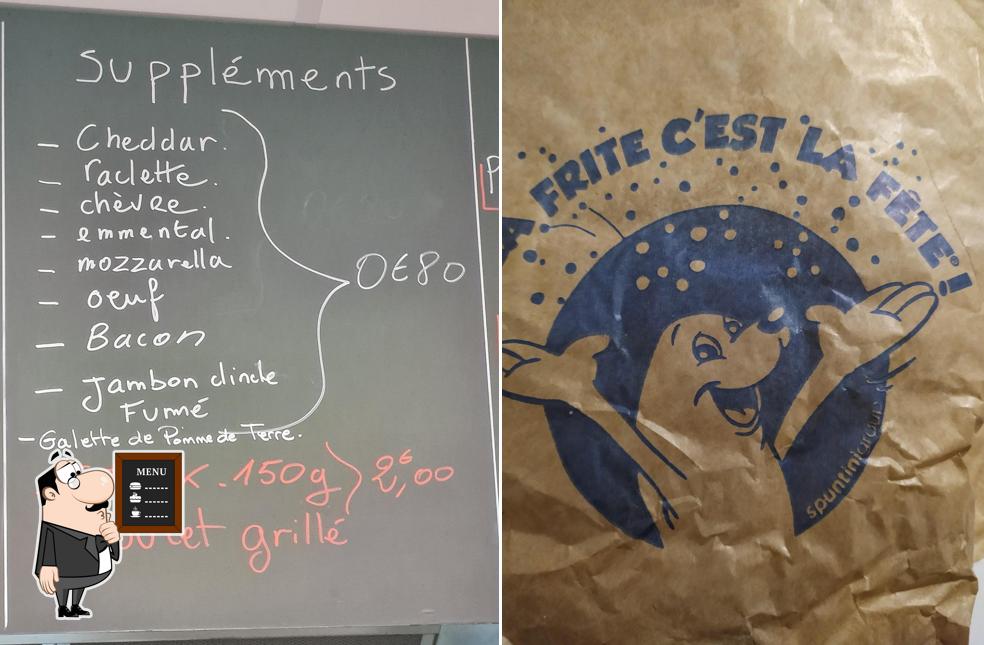 Suppléments
- Cheddar.
- raclette.
- chèvre.
- emmental.
- mozzarella
- oeuf
- Bacon
- Jambon dinde
Fumé
- Galette de Pomme de Terre.
0€80
150g
2€,00
grillé
MENU
FRITE C'EST LA FÊTE!
spuntini